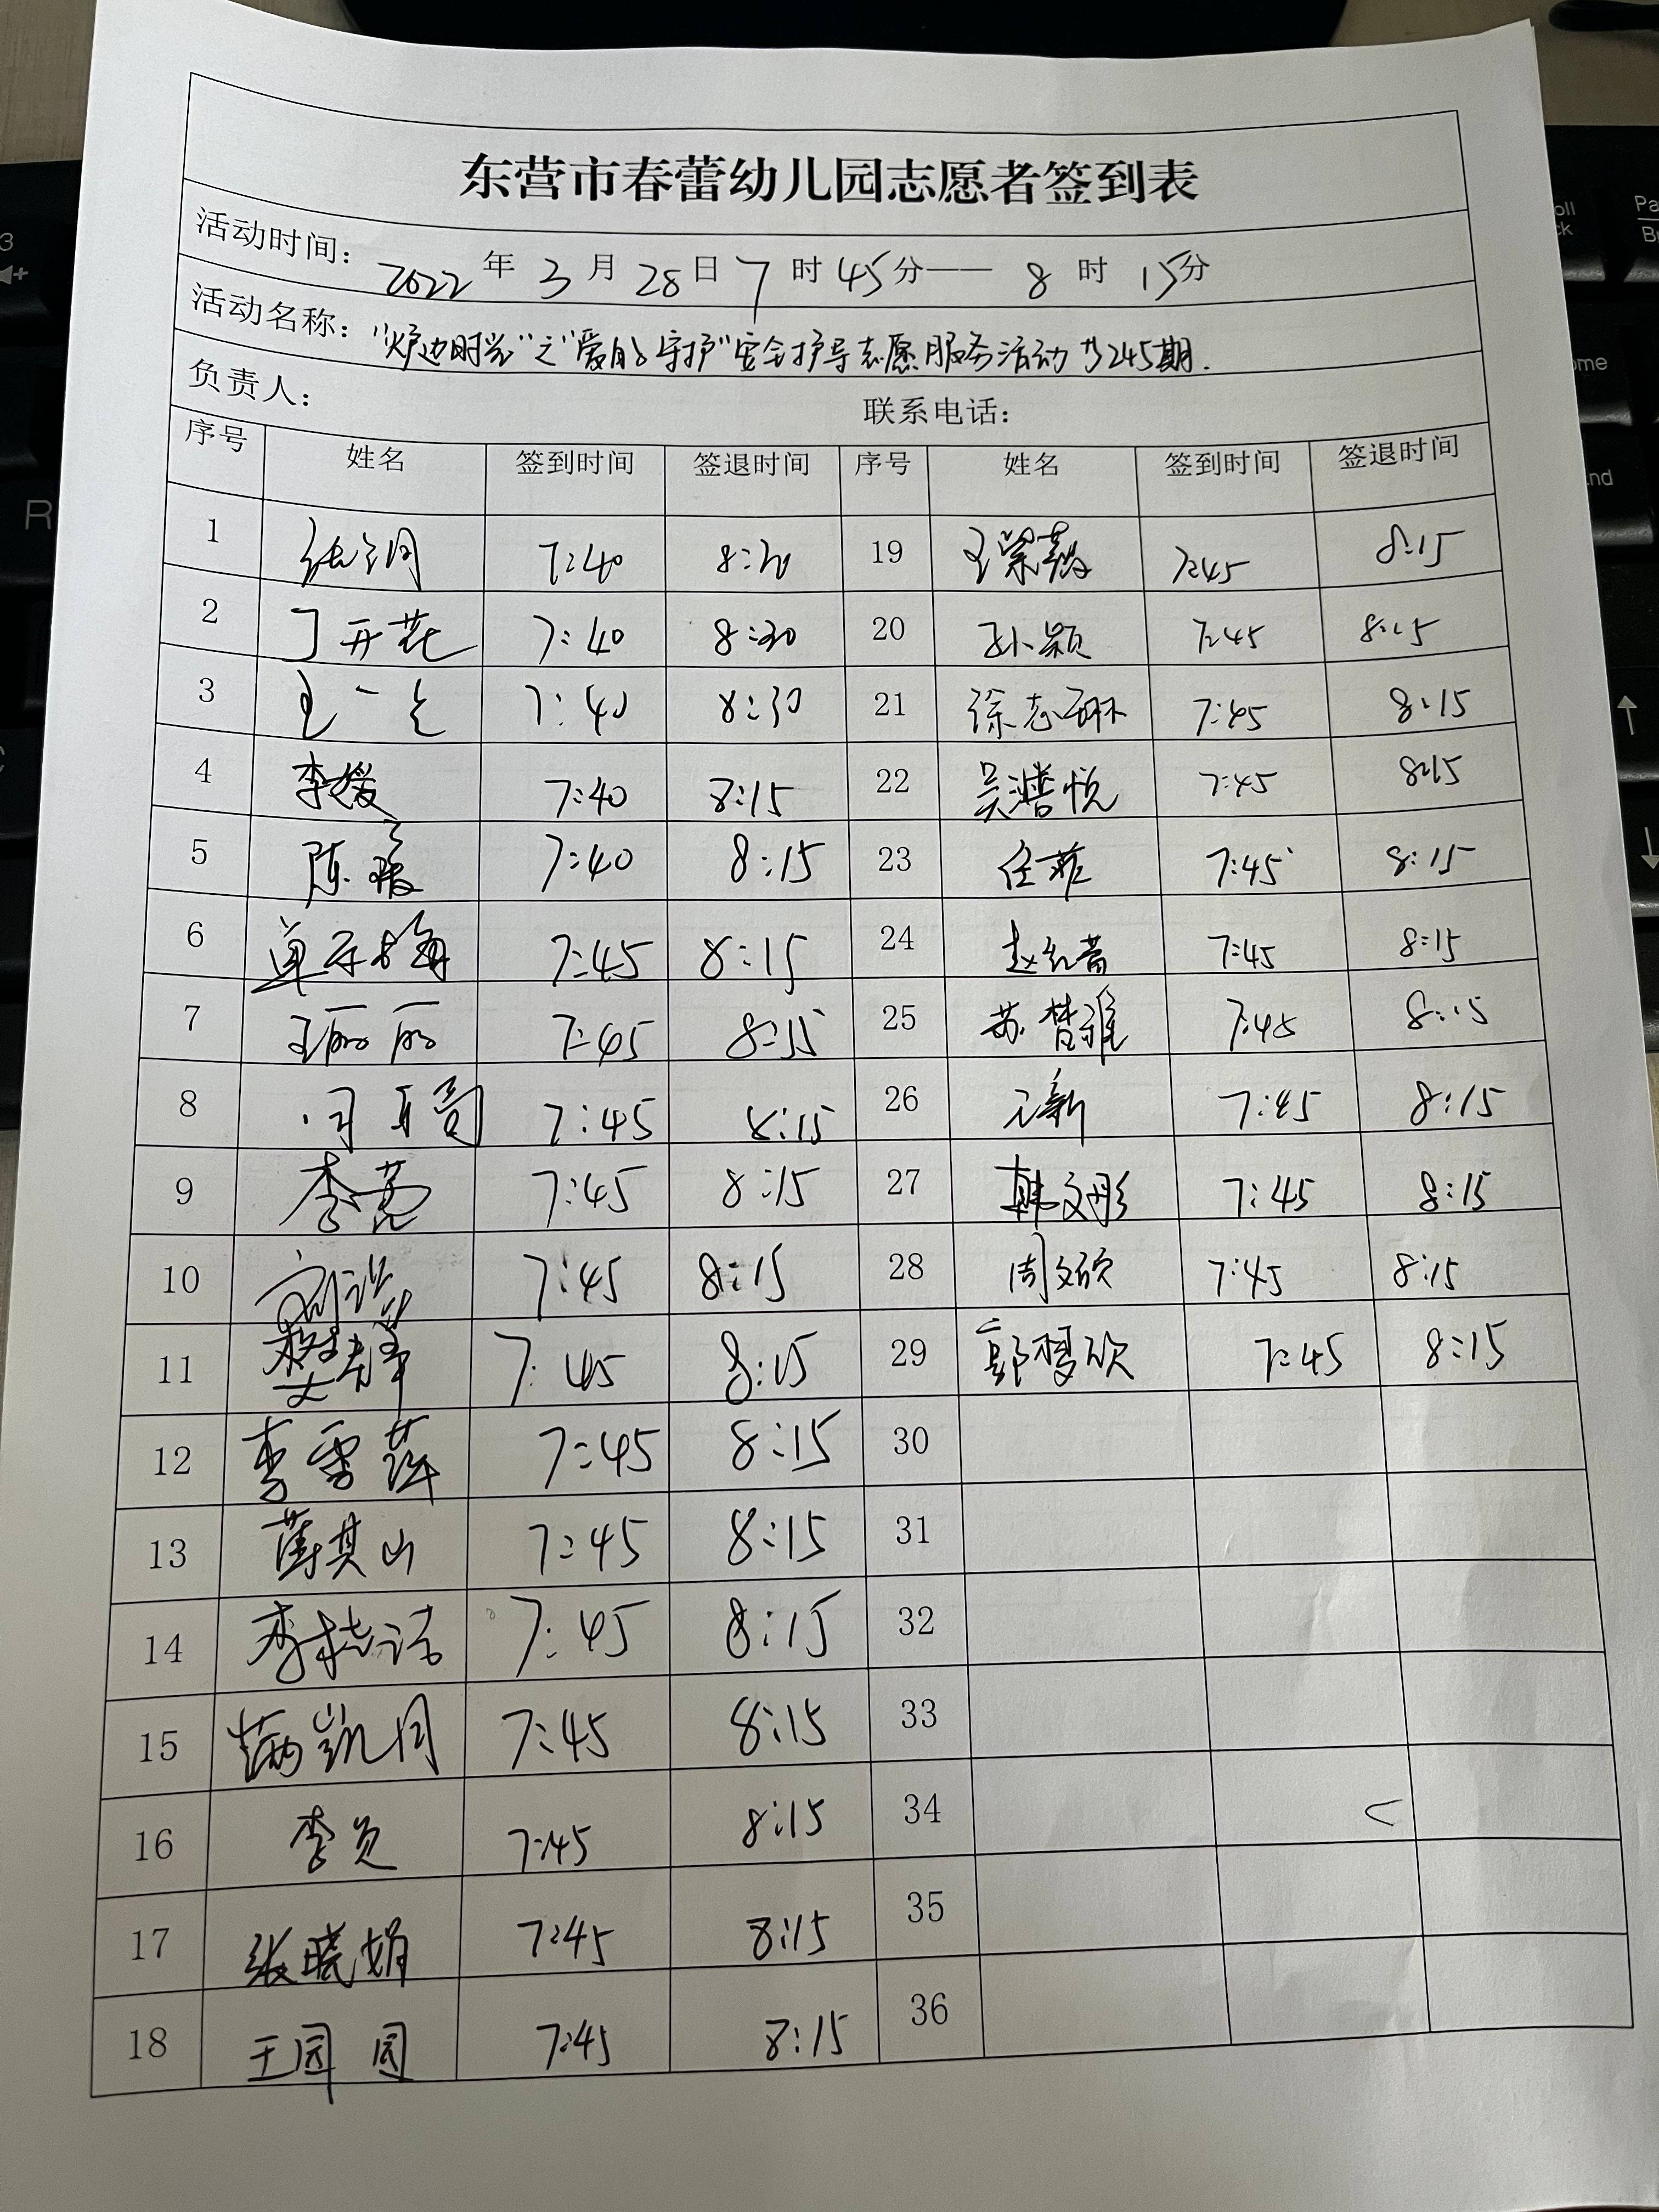 东营市春蕾幼儿园志愿者签到表
活动时间: 2022 年 3 月 28 日 7 时 45 分—— 8 时 15 分
活动名称: "炉边时光"之"爱的守护"安全护导志愿服务活动第245期.
负责人: 联系电话:
序号 姓名 签到时间 签退时间 序号 姓名 签到时间 签退时间
1 7:40 8:30 19 王荣 7:45 8:15
2 丁开花 7:40 8:30 20 孙颖 7:45 8:15
3 王一 7:40 8:30 21 徐志琳 7:45 8:15
4 李媛 7:40 8:15 22 吴潽悦 7:45 8:15
5 陈 7:40 8:15 23 任菲 7:45 8:15
6 单 梅 7:45 8:15 24 赵红蕾 7:45 8:15
7 王丽丽 7:45 8:15 25 苏楚雅 7:45 8:15
8 7:45 8:15 26 新 7:45 8:15
9 李 7:45 8:15 27 韩文彤 7:45 8:15
10 刘 7:45 8:15 28 周文欣 7:45 8:15
11 樊 7:45 8:15 29 郭梦欣 7:45 8:15
12 李雪萍 7:45 8:15 30
13 其山 7:45 8:15 31
14 李桂 7:45 8:15 32
15 凯月 7:45 8:15 33
16 李 7:45 8:15 34
17 张晓娟 7:45 8:15 35
18 王园园 7:45 8:15 36